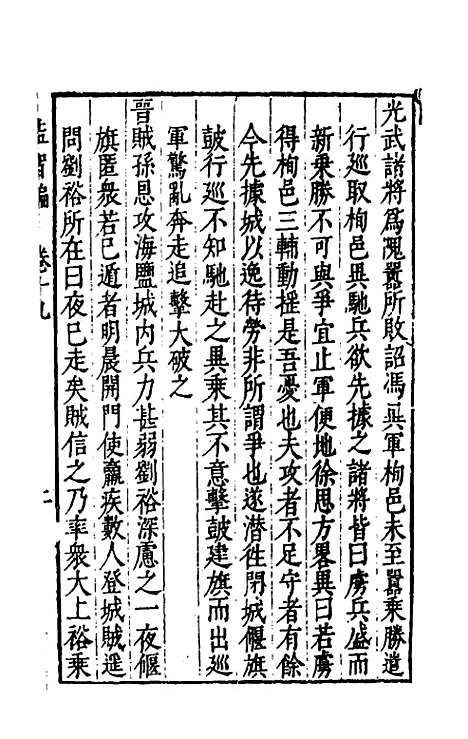 光武諸將為隗囂所敗詔馮異軍栒邑未至囂乘勝遣
行廵取栒邑異馳兵欲先據之諸將皆曰虜兵盛而
新乗勝不可與爭宜止軍便地徐思方畧異曰若虜
得栒邑三輔動揺是吾憂也夫攻者不足守者有餘
今先據城以逸待勞非所謂爭也遂潜徃閉城偃旗
鼓行廵不知馳赴之異乗其不意擊鼓建旗而出廵
軍驚亂奔走追擊大破之
晉賊孫恩攻海鹽城内兵力甚弱劉裕深慮之一夜偃
旗匿衆若已遁者明晨開門使羸疾數人登城賊遥
問劉裕所在曰夜已走矣賊信之乃率衆大上裕乘
智編
卷
九
二